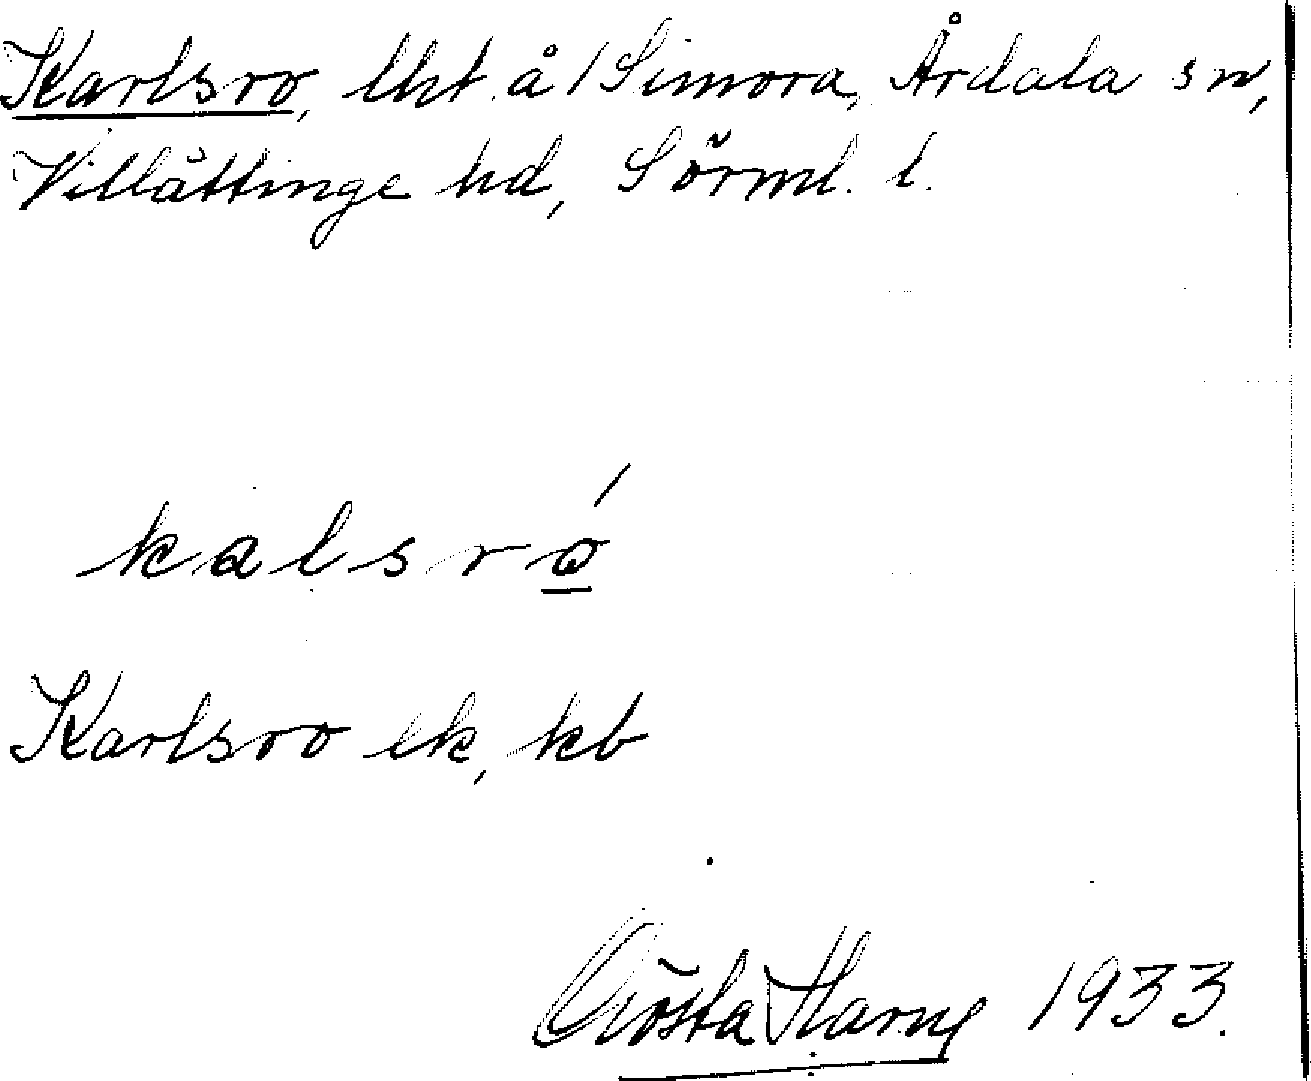 Karlsro, lht å /Simora, Årdala sn,
Villåttinge hd, Sörml. l.
kalsró
Karlsro ek, kb
Gösta Harng 1933.